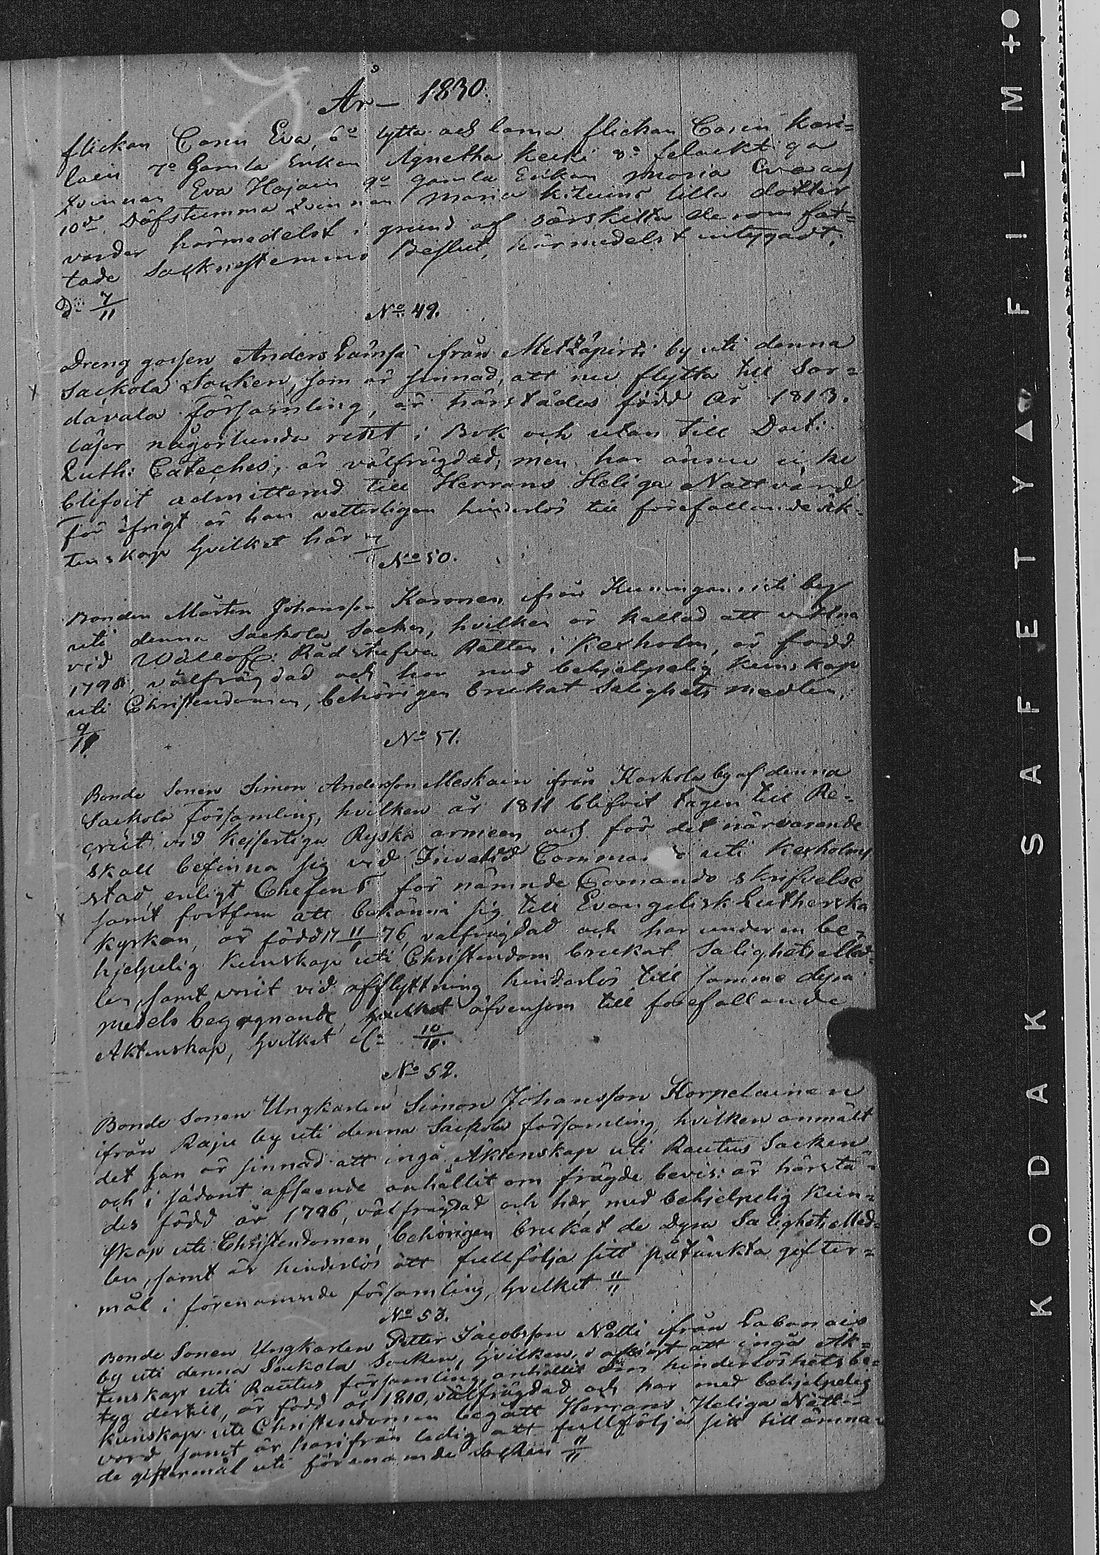 År 1830.
flickan Carin Eva, 6º lytta och lama flickan Carin Kari-
lain 7º Gamla Enkan Agnetha Keiki 8º felaktiga
Qvinnan Eva Hajain 9º gamla Enkan Maria Eva och
10de Döfstumma Qvinnan Maria dotter
varder härmedelst i grund af särskilta de som fat-
tade Socknestemmo Beslut, härmedelst intygadt.
Dn 7/11
No 49.
Dreng gossen Anders från Metzäpirti by uti denna
Sackola Socken, som är sinnad, att nu flytta till Sor-
davala Församling, är härstädes född år 1813.
läser någorlunda rett i Bok och utan till Doct:
Luth: Cateches, är välfrägdad, men har ännu icke
blifvit admitterad till Herrans Heliga Nattvard
För öfrigt är han vetterligen hinderlös till förefallande Äk-
tenskap hvilket här
No 50.
Bonden Mårten Johansson Karonen ifrån by
uti denna Sackola Socken, hvilken är kallad att vittna
vid Wällofl: Rådstufvu Rätten i Kexholm, är född
1790 välfrägdad och har med behjelpelig kunskap
uti Christendomen, behörigen brukat Salighets medlen.
9/11
No 51.
Bonde Sonen Simon Andersson Meskain ifrån Karhola by af denna
Sackola Församling, hvilken år 1811 blifvit tagen till Re-
crut vid Kejserliga Ryska armeen och för det närvarande
skall befinna sig vid Invalid Commando uti Kexholms
stad, enligt Chefens för nämnde Comando skrifvelse
samt fortfom att bekänna sig till Evangelisk Lutherska
Kyrkan, är född 17 11/1 76, välfrägdad och har under en be-
hjelpelig kunskap uti Christendom brukat Salighets Med-
len, samt varit vid afflyttning hinderlös till samme dyra
medels begagnande hvilket äfvensom till förefallande
Äktenskap, hvilket 10/11.
No 52.
Bonde Sonen Ungkarlen Simon Johansson Korpelainen
ifrån Raju by uti denna Sackola församling, hvilken anmält
det han är sinnad att ingå Äktenskap uti Rautus Socken
och i sådant afseende anhållit om frägde bevis: är härstä-
des född år 1796, välfrägdad och har med behjelpelig kun-
skap uti Christendomen, behörigen brukat de Dyra Salighets Med-
len, samt är hinderlös att fullfölja sitt påtänkta gifter-
mål i förenämnde församling, hvilket 11/11
No 53.
Bonde Sonen Ungkarlen Petter Jacobsson Nätti ifrån
by uti denna Sackola Socken, hvilken, i afsigt att ingå Äk-
tenskap uti Rautus församling, anhållit om hinderlöshets be-
tyg dertill, är född år 1810, välfrägdad och har med behjelpelig
kunskap uti Christendomen begått Herrans Heliga Natt-
vard samt är härifrån ledig att fullfölja sitt tillämna-
de giftermål uti förenämnde Socken 11/11
KODAK SAFETY FILM